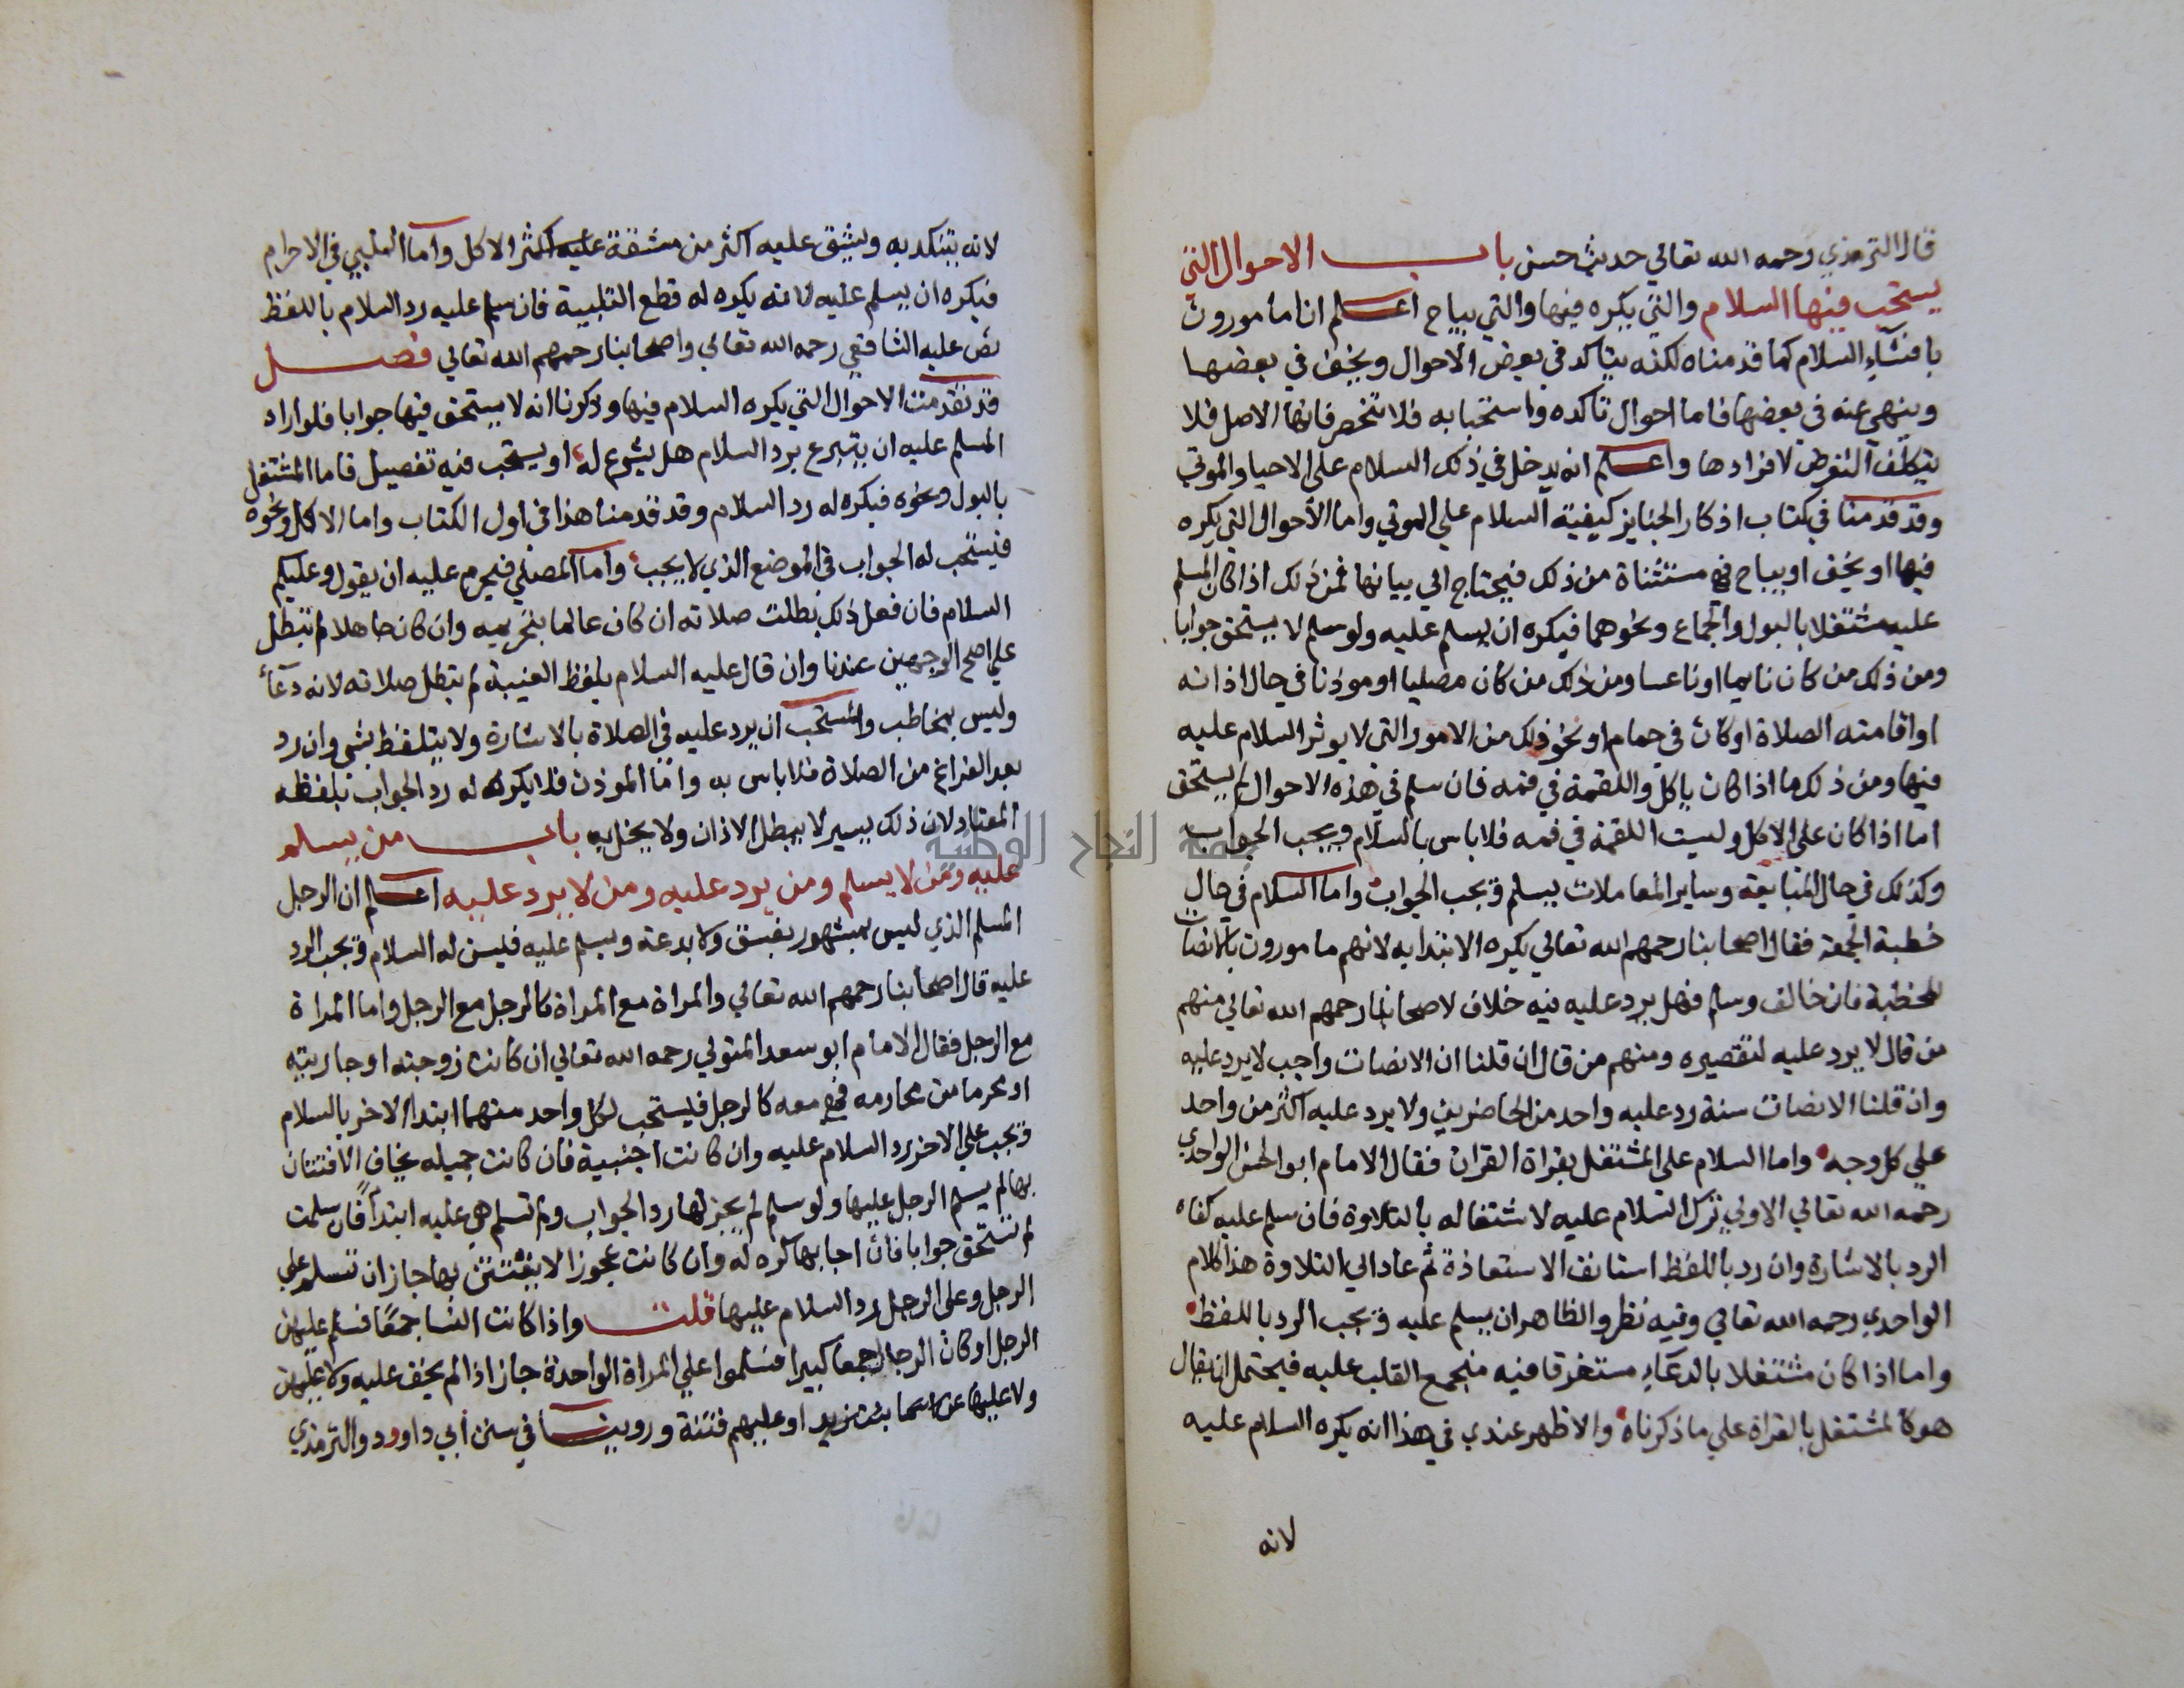 قال الترمذي رحمه الله تعالي حديث حسن باب الاحوال التي
يستحب فيها السلام والتي يكره فيها والتي يباح اعلم انا مامورون
بافشاء السلام كما قدمناه لكنه يتاكد في بعض الاحوال ويخف في بعضها
وينهي عنه في بعضها فاما احوال تاكده واستحبابه فلا تنحصر فانها الاصل فلا
يتكلف التعرض لافرادها واعلم انه يدخل في ذلك السلام علي الاحيا والموتي
وقد قدمنا في كتاب اذكار الجنايز كيفية السلام علي الموتي واما الاحوال التي يكره
فيها او يخف او يباح فهي مستثناة من ذلك فيحتاج الي بيانها فمن ذلك اذا كان المسلم
عليه مشتغلا بالبول والجماع ونحوهما فيكره ان يسلم عليه ولو سلم لا يستحق جوابا
ومن ذلك من كان نايما او ناعسا ومن ذلك من كان مصليا او موذنا في حال اذانه
او اقامته الصلاة او كان في حمام او نحو ذلك من الامور التي لا يوثر السلام عليه
فيها ومن ذلك ما اذا كان ياكل واللقمة في فمه فان سلم في هذه الاحوال لم يستحق
اما اذا كان علي الاكل وليست اللقمة في فمه فلا باس بالسلام ويجب الجواب
وكذلك في حال المبايعة وساير المعاملات يسلم ويجب الجواب واما السلام في حال
خطبة الجمعة فقال اصحابنا رحمهم الله تعالي يكره الابتدا به لانهم مامورون بالانصات
للخطبة فان خالف وسلم فهل يرد عليه فيه خلاف لاصحابنا رحمهم الله تعالي منهم
من قال لا يرد عليه لتقصيره ومنهم من قال ان قلنا ان الانصات واجب لا يرد عليه
وان قلنا الانصات سنة رد عليه واحد من الحاضرين ولا يرد عليه اكثر من واحد
علي كل وجه واما السلام علي المشتغل بقراة القران فقال الامام ابو الحسن الواحدي
رحمه الله تعالي الاولي ترك السلام عليه لاشتغاله بالتلاوة فان سلم عليه كفاه
الرد بالاشارة وان رد باللفظ استانف الاستعاذة ثم عاد الي التلاوة هذا كلام
الواحدي رحمه الله تعالي وفيه نظر والظاهر ان يسلم عليه ويجب الرد باللفظ
واما اذا كان مشتغلا بالدعاء مستغرقا فيه منجمع القلب عليه فيحتمل ان يقال
هو كالمشتغل بالقراة علي ما ذكرناه والاظهر عندي في هذا انه يكره السلام عليه
لانه
لانه يتنكد به ويشق عليه اكثر من مشقة عليه اكثر الاكل واما الملبي في الاحرام
فيكره ان يسلم عليه لانه يكره له قطع التلبية فان سلم عليه رد السلام باللفظ
نص عليه الشافعي رحمه الله تعالي واصحابنا رحمهم الله تعالي فصل
قد تقدمت الاحوال التي يكره السلام فيها وذكرنا انه لا يستحق فيها جوابا فلو اراد
المسلم عليه ان يتبرع برد السلام هل يشرع له او يستحب فيه تفصيل فاما المشتغل
بالبول ونحوه فيكره له رد السلام وقد قدمنا هذا في اول الكتاب واما الاكل ونحوه
فيستحب له الجواب في الموضع الذي لا يجب واما المصلي فيحرم عليه ان يقول وعليكم
السلام فان فعل ذلك بطلت صلاته ان كان عالما بتحريمه وان كان جاهلا لم تبطل
علي اصح الوجهين عندنا وان قال عليه السلام بلفظ الغيبة لم تبطل صلاته لانه دعاء
وليس بمخاطب والمستحب ان يرد عليه في الصلاة بالاشارة ولا يتلفظ بشي وان رد
بعد الفراغ من الصلاة فلا باس به واما الموذن فلا يكره له رد الجواب بلفظه
المعتاد لان ذلك يسير لا يبطل الاذان ولا يخل به باب من يسلم
عليه ومن لا يسلم ومن يرد عليه ومن لا يرد عليه اعلم ان الرجل
المسلم الذي ليس بمشهور بفسق ولا بدعة ويسلم عليه فليس له السلام ويجب الرد
عليه قال اصحابنا رحمهم الله تعالي والمراة مع المراة كالرجل مع الرجل واما المراة
مع الرجل فقال الامام ابو سعد المتولي رحمه الله تعالي ان كانت زوجته او جاريته
او محرما من محارمه فهي معه كالرجل فيستحب لكل واحد منهما ابتدا الاخر بالسلام
ويجب علي الاخر رد السلام عليه وان كانت اجنبية فان كانت جميله يخاف الافتتان
بها لم يسلم الرجل عليها ولو سلم لم يجز لها رد الجواب ولم تسلم هي عليه ابتداً فان سلمت
لم تستحق جوابا فان اجابها كره له وان كانت عجوزا لا يفتتن بها جاز ان تسلم علي
الرجل وعلي الرجل رد السلام عليها قلت واذا كانت النسا جمعًا فسلم عليهن
الرجل او كان الرجال جمعا كبيرا فسلموا علي المراة الواحدة جاز اذا لم يخف عليه ولا عليهن
ولا عليها عن اسما بنت يزيد او عليهم فتنة وروينا في سنن ابي داوود والترمذي
جامعة النجاح الوطنية